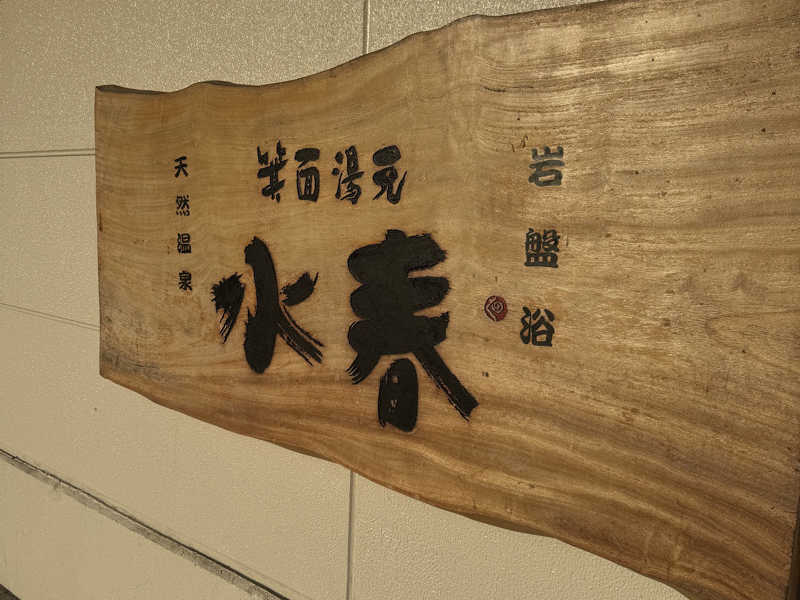 天然温泉
箕面湯元
水春
岩盤浴